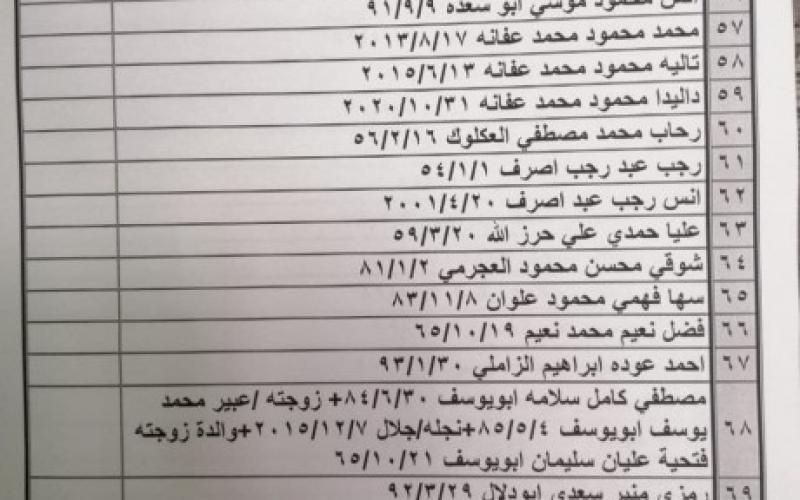 انس محمود موسي ابو سعده ٩١/٩/٩
٥٧ محمد محمود محمد عفانه ٢٠١٣/٨/١٧
٥٨ تاليه محمود محمد عفانه ٢٠١٥/٦/١٣
٥٩ داليدا محمود محمد عفانه ٢٠٢٠/١٠/٣١
٦٠ رحاب محمد مصطفي العكلوك ٥٦/٢/١٦
٦١ رجب عبد رجب اصرف ٥٤/١/١
٦٢ انس رجب عبد اصرف ٢٠٠١/٤/٢٠
٦٣ عليا حمدي علي حرز الله ٥٩/٣/٢٠
٦٤ شوقي محسن محمود العجرمي ٨١/١/٢
٦٥ سها فهمي محمود علوان ٨٣/١١/٨
٦٦ فضل نعيم محمد نعيم ٦٥/١٠/١٩
٦٧ احمد عوده ابراهيم الزاملي ٩٣/١/٣٠
مصطفي كامل سلامه ابويوسف ٨٤/٦/٣٠+ زوجته /عبير محمد
٦٨ يوسف ابويوسف ٨٥/٥/٤+نجله/جلال ٢٠١٥/١٢/٧+والدة زوجته
فتحية عليان سليمان ابويوسف ٦٥/١٠/٢١
٦٩ رمزي منير سعدي ابودلال ٩٢/٣/٢٩